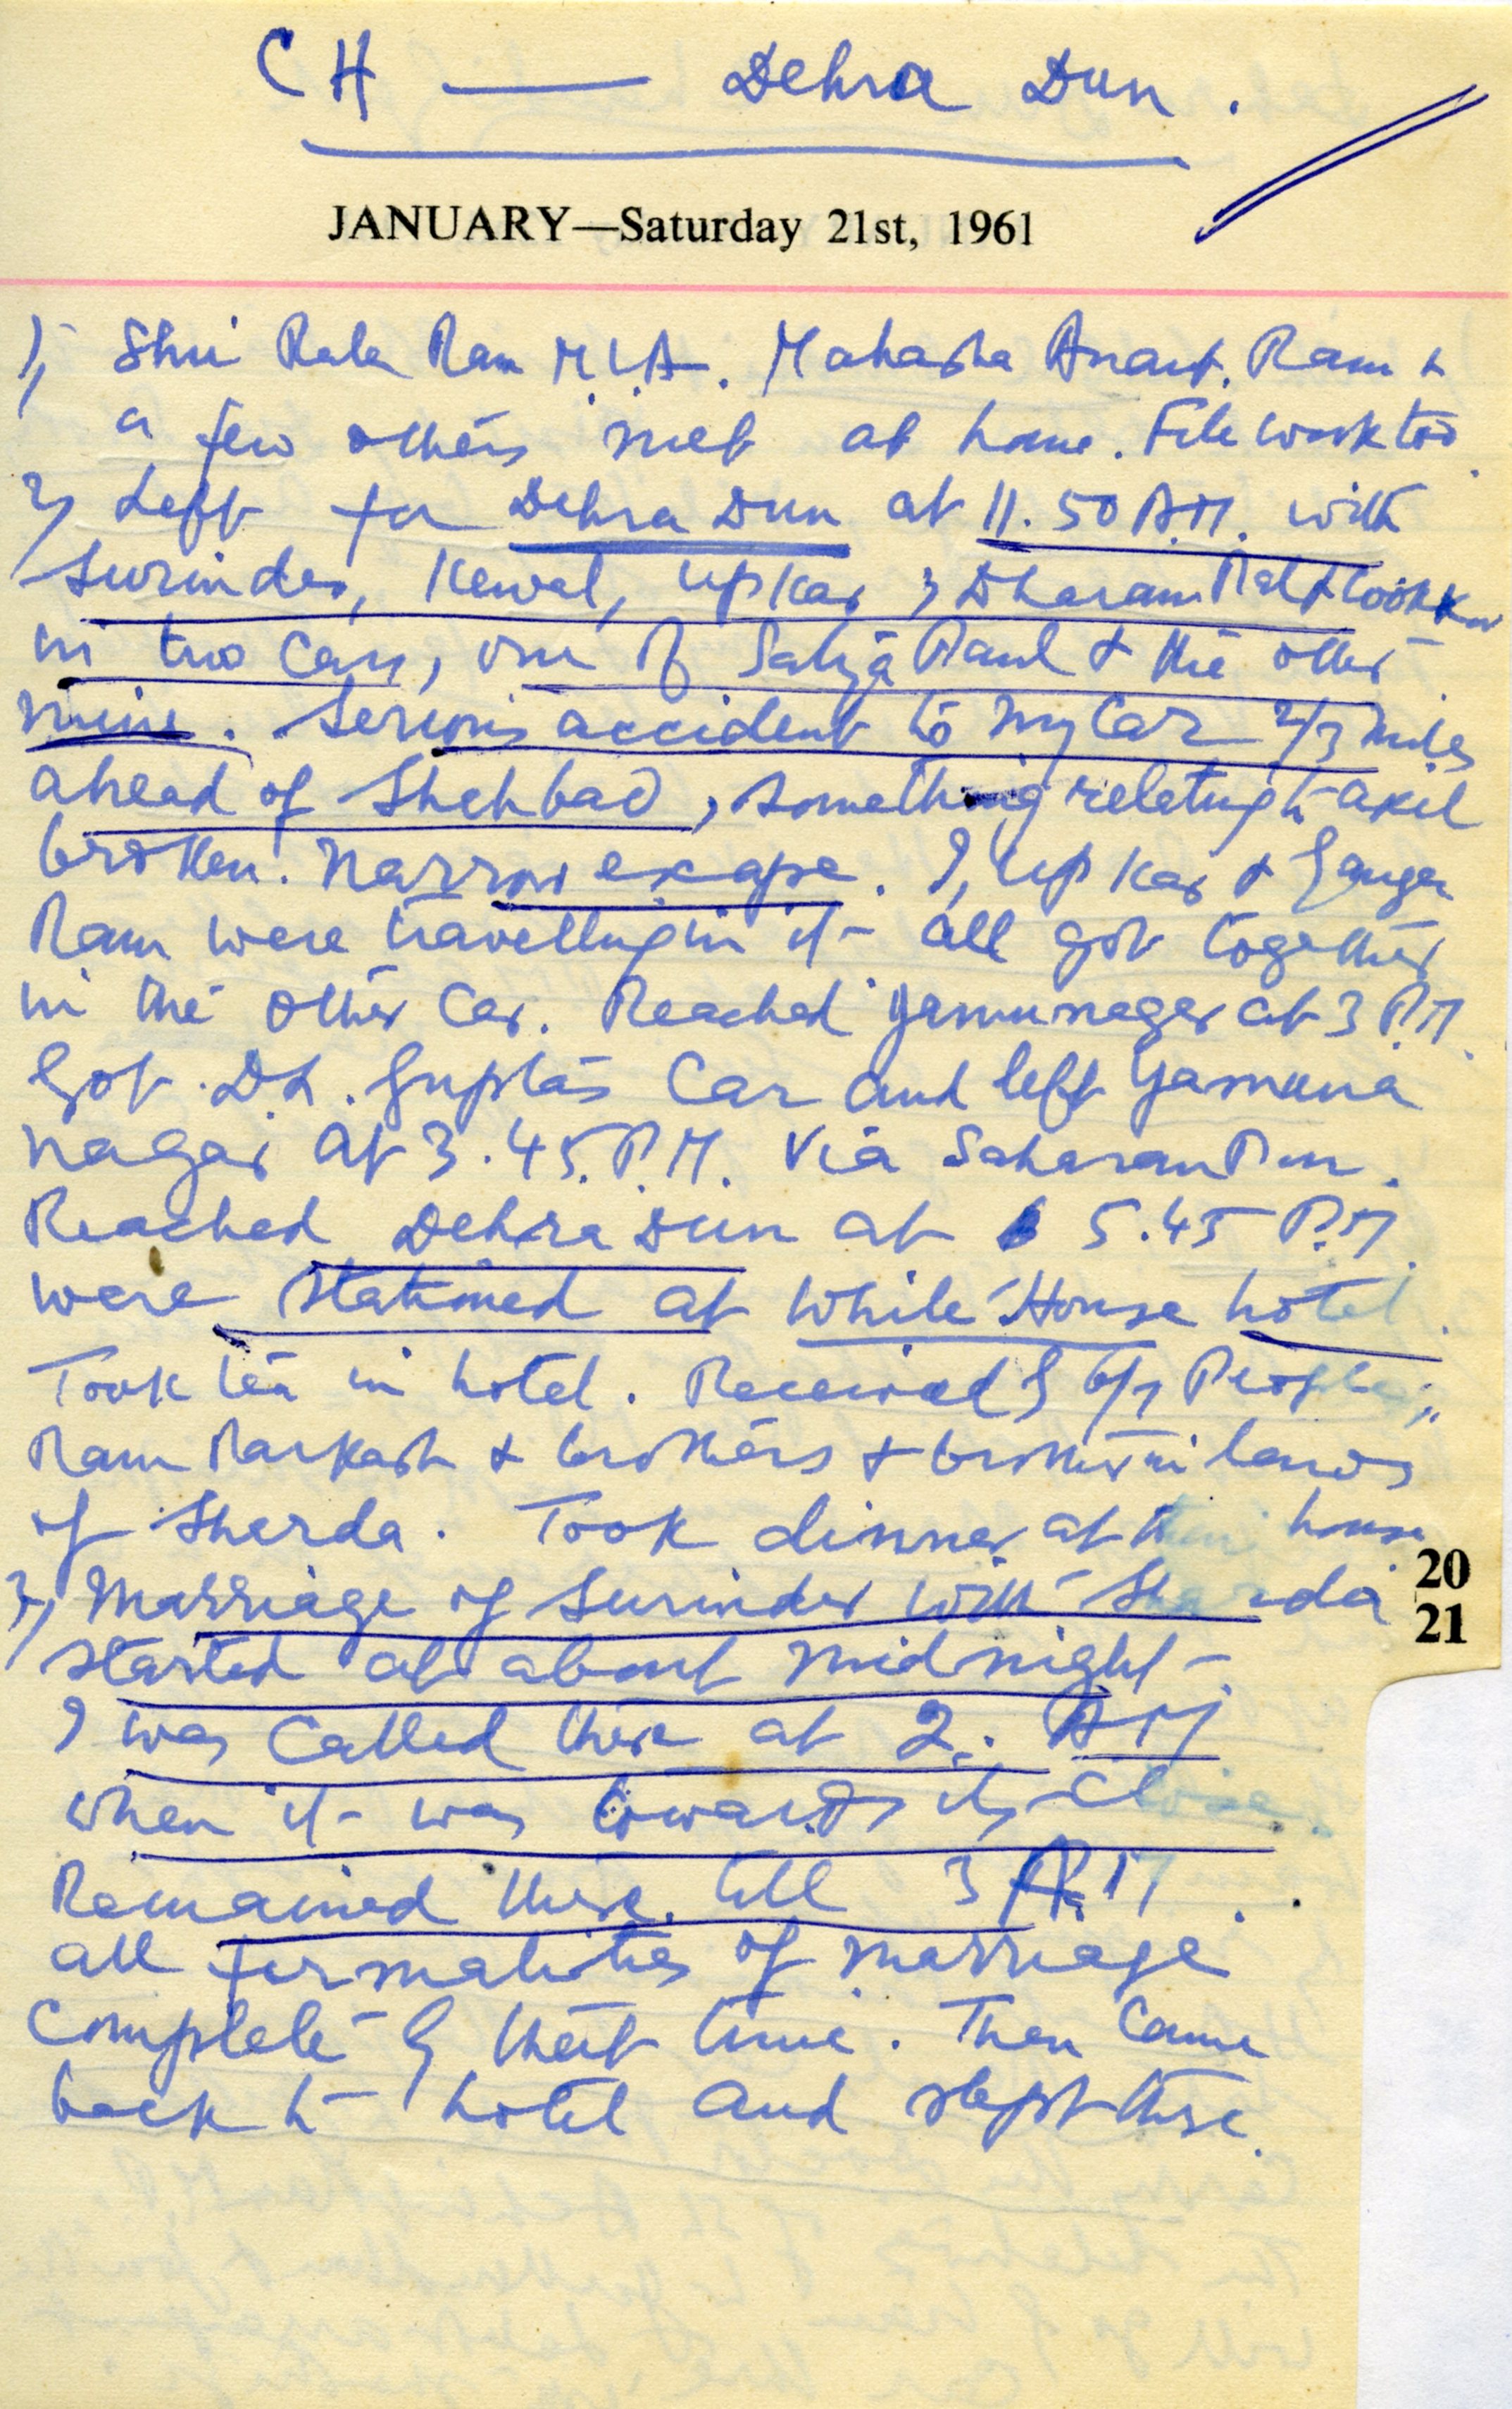 CH — Dehra Dun.
JANUARY—Saturday 21st, 1961
1, Shri Rala Ram M.L.A. Mahasha Anant Ram +
a few others met at home. File work too.
2, Left for Dehra Dun at 11.50 A.M. with
Surinder, Kewal, Upkar, Dharam
in two cars, one of Satya Paul + the other
mine. Serious accident to my car 2/3 miles
ahead of Shahbad, something relating to axil
broken. Narrow escape. I, Upkar + Ganga
Ram were travelling in it - all got together
in the other car. Reached Yamunagar at 3 P.M.
Got D.L. Gupta's car and left Yamuna
nagar at 3.45. P.M. via Saharanpur.
Reached Dehra Dun at 5.45 P.M.
were stationed at White House hotel.
Took tea in hotel. Received by 6/7 People,
Ram Parkash + brothers + brother in laws
of Sharda. Took dinner at their house
3, Marriage of Surinder with Sharda
20
started at about midnight -
21
I was called there at 2. AM
when it was towards its close.
Remained there till 3 A.M.
all formalities of marriage
complete by that time. Then came
back to hotel and slept there.